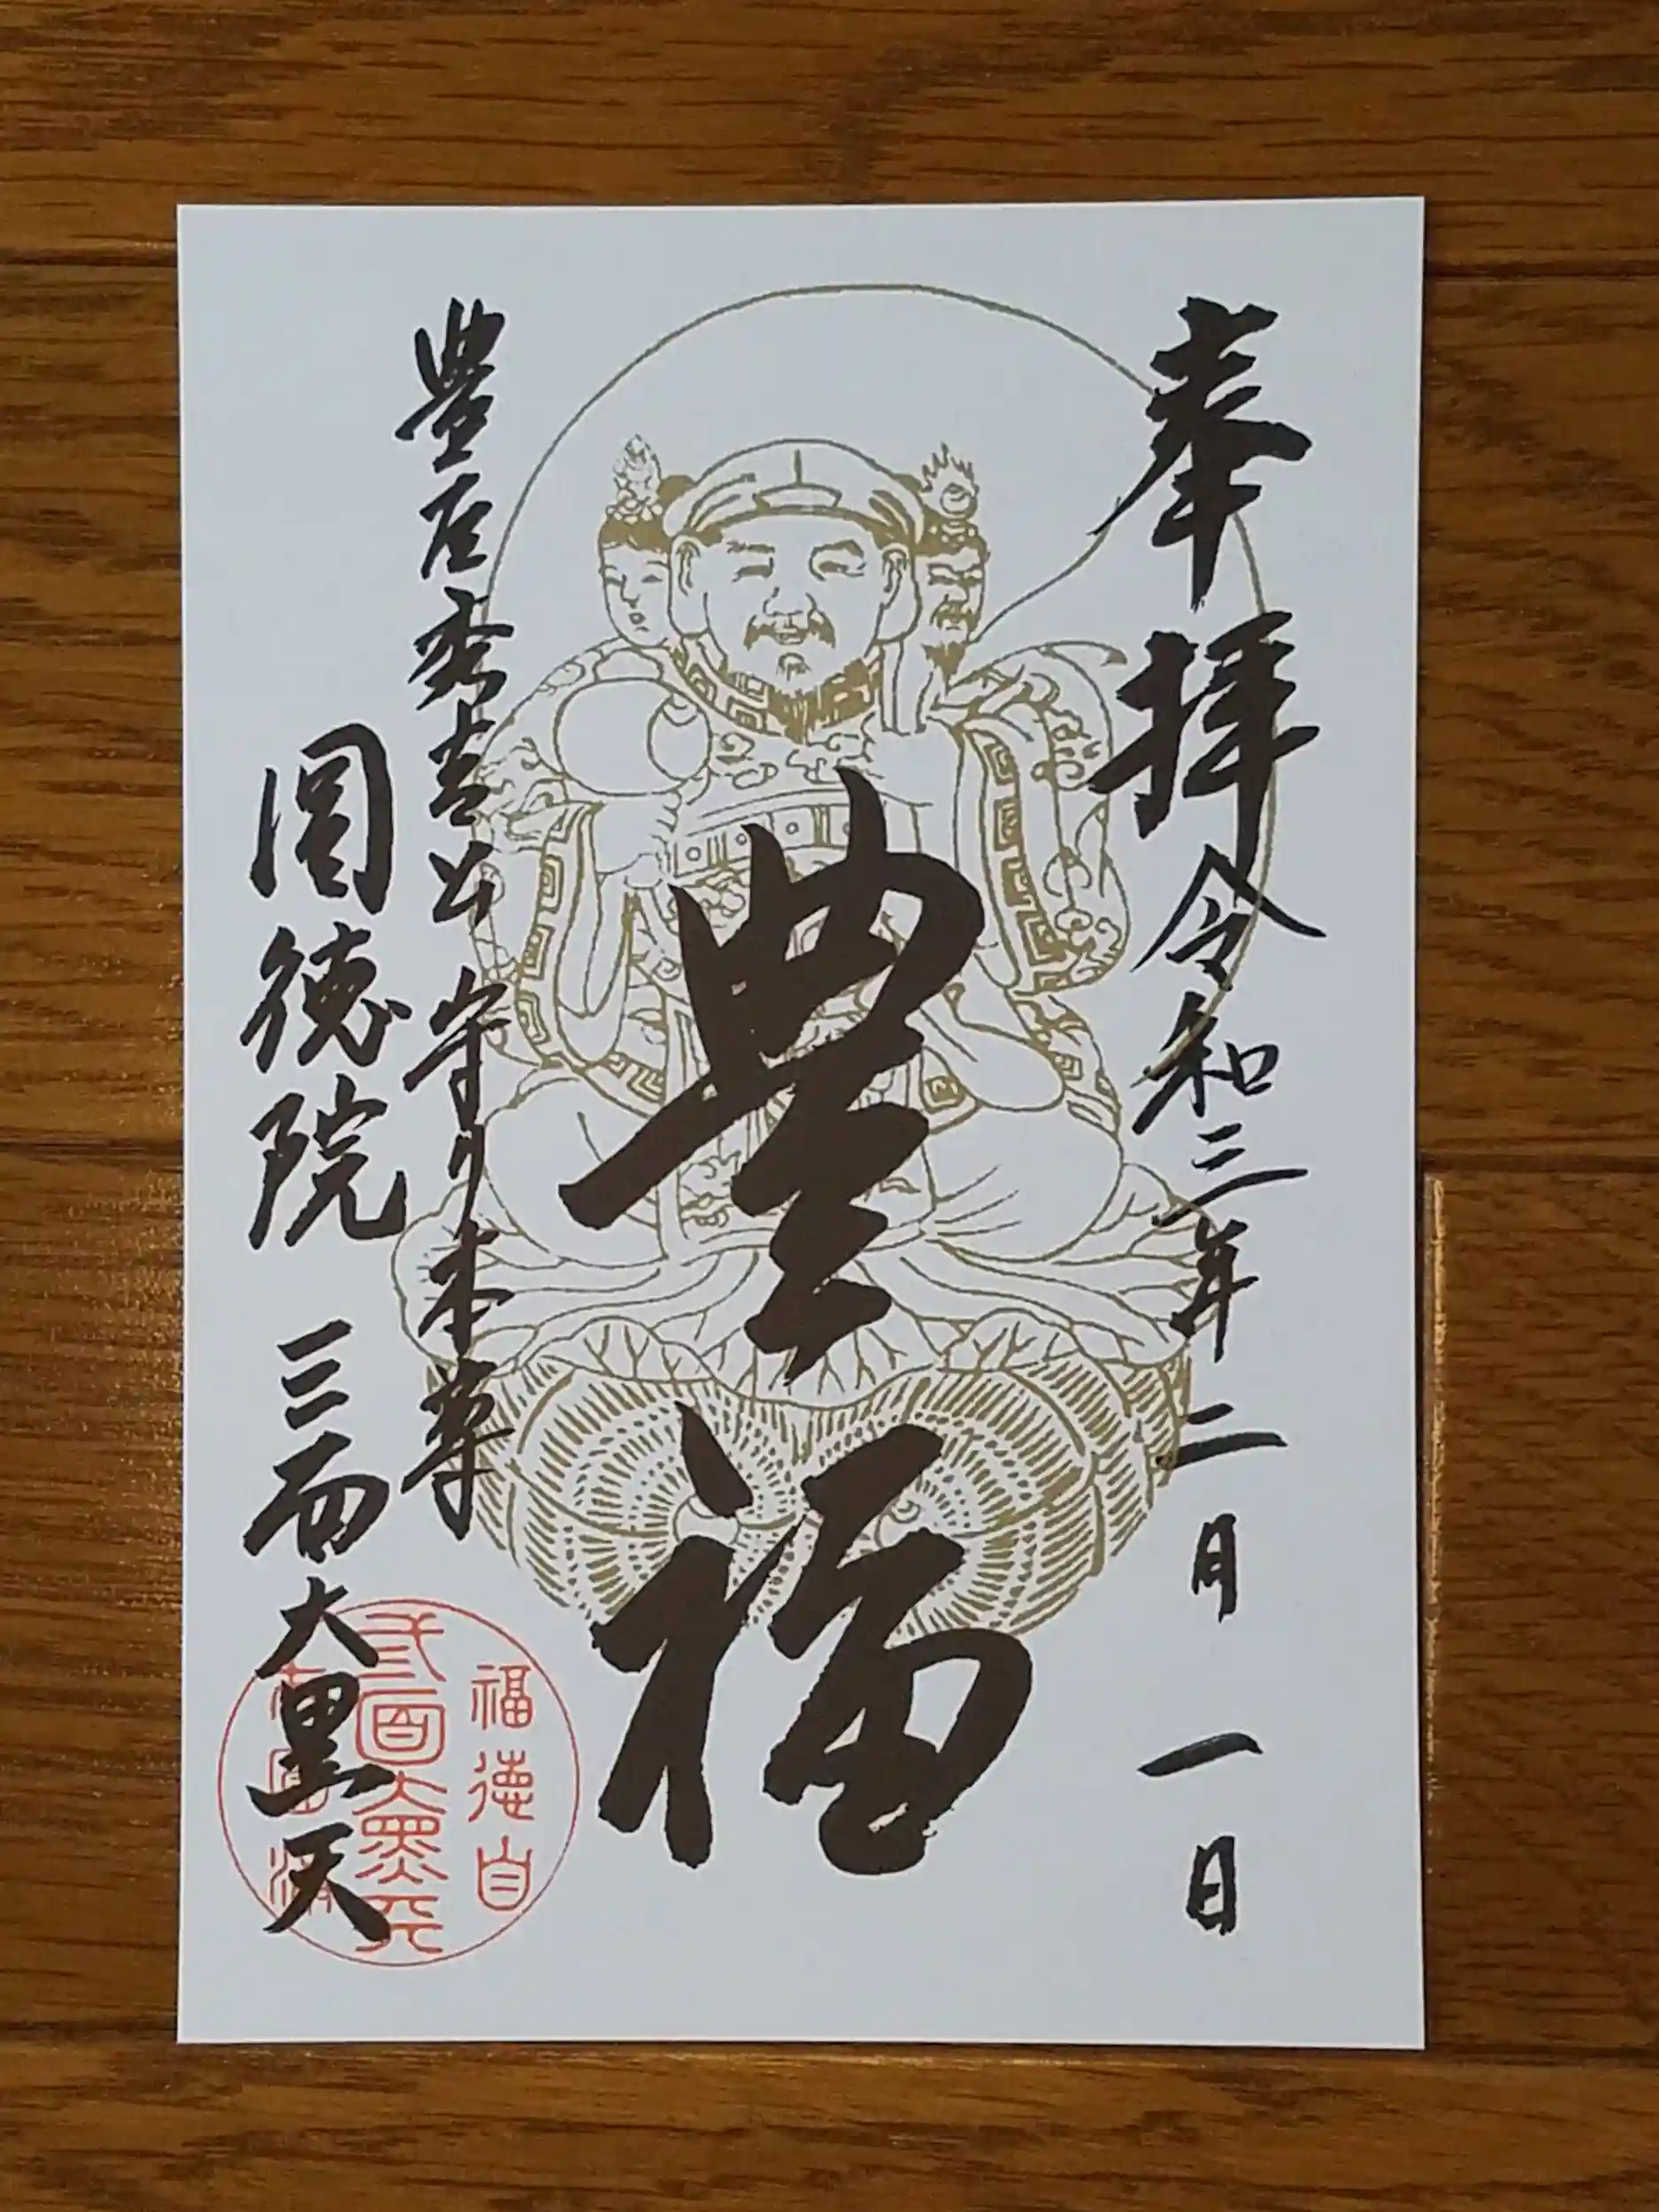 奉拝 令和三年二月一日
豊福
豊臣秀吉公 守り本尊
圓徳院 三面大黒天
福徳自
三面大黒天